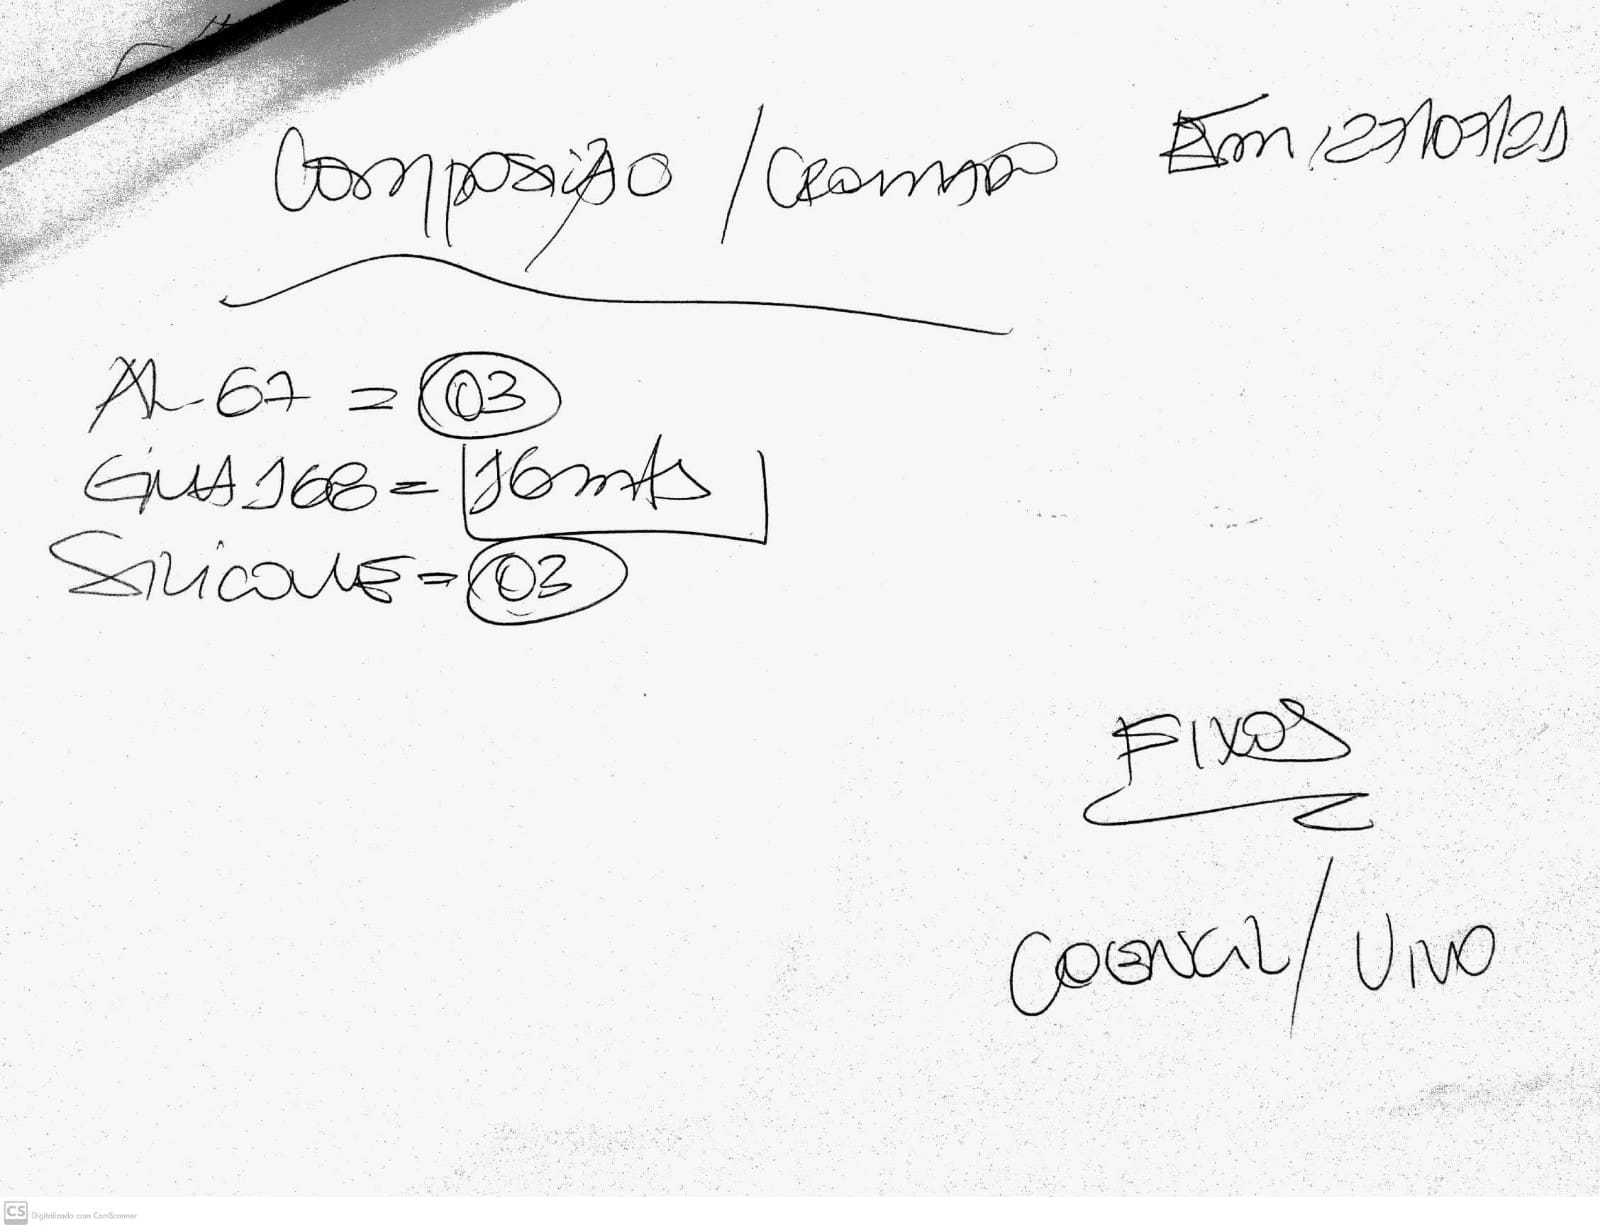 Composição / Cromado Em, 27/07/21
AL 67 = 03
GUA 168 = 16 mts
Silicone = 03
Fixos
COENGIL / VIVO
CS Digitalizado com CamScanner